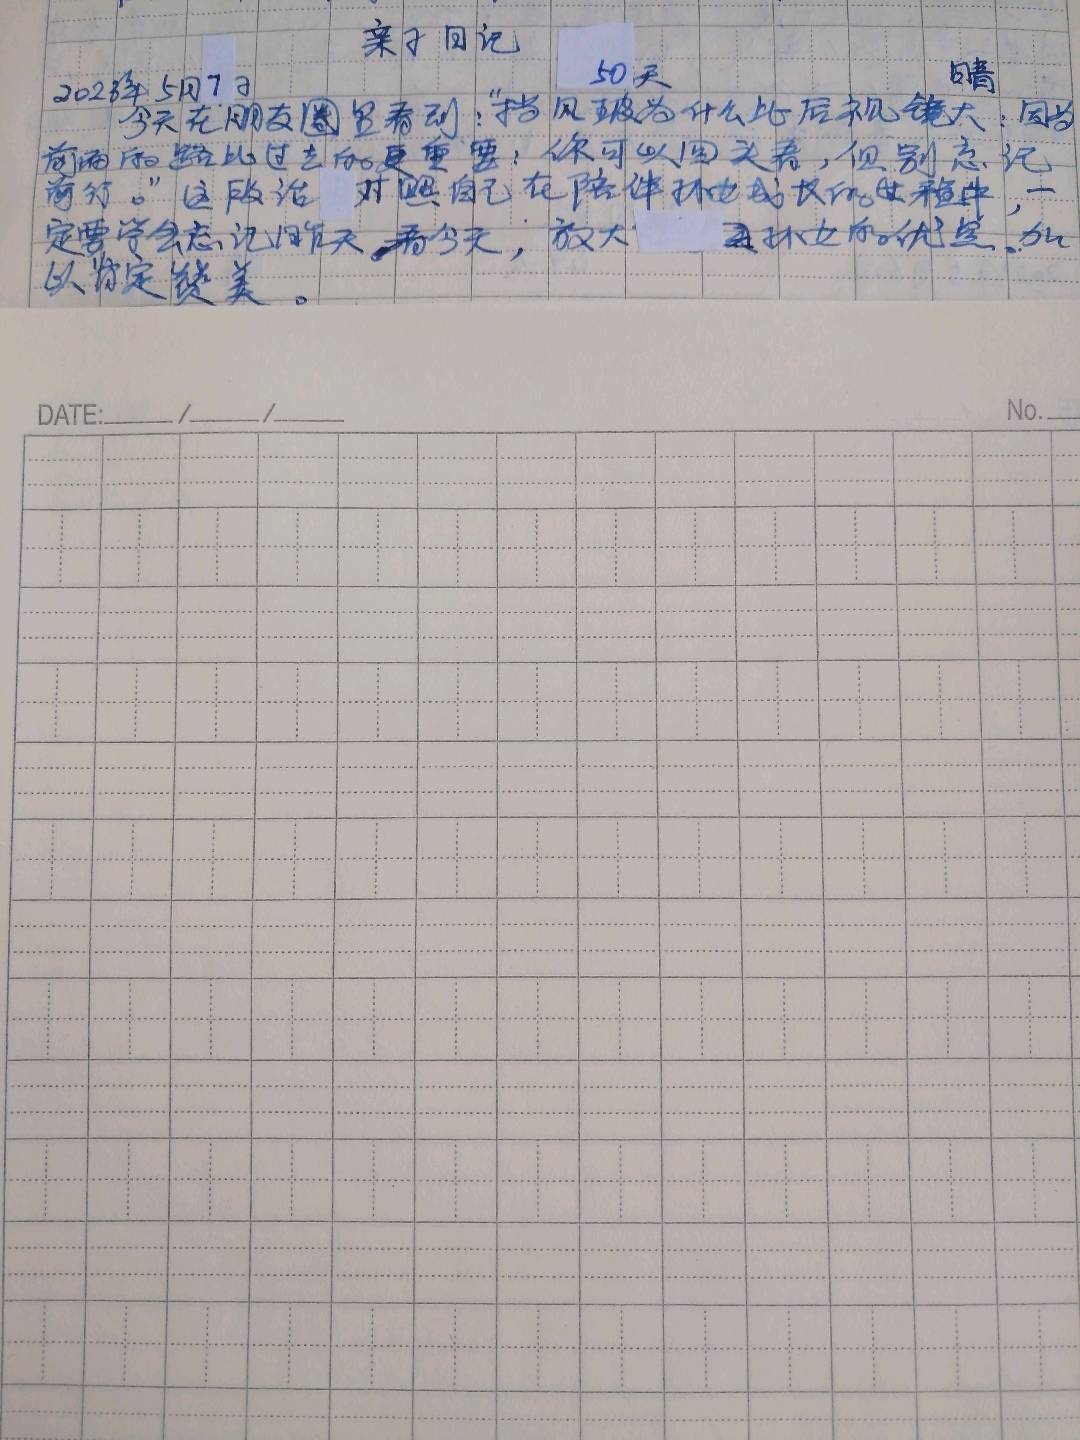 亲子日记
2023年5月7日 50天 晴
今天在朋友圈里看到:“挡风玻为什么比后视镜大:因为
前面的路比过去的更重要,你可以回头看,但别忘记
前行。”这段话对照自己在陪伴孙女成长的过程中,一
定要学会忘记昨天,看今天,放大孙女的优点.加
以肯定赞美。
DATE: / /
No.